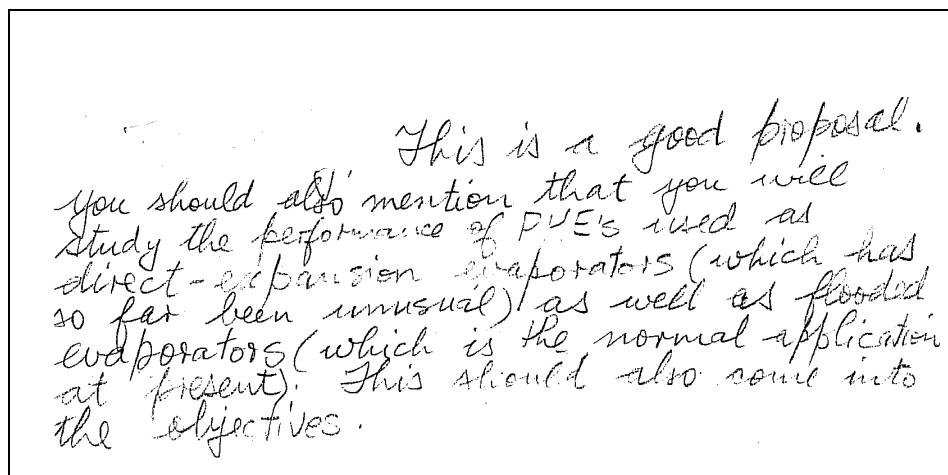 This is a good proposal.
you should also mention that you will
study the performance of PVE's used as
direct-expansion evaporators (which has
so far been unusual) as well as flooded
evaporators (which is the normal application
at present). This should also come into
the objectives.